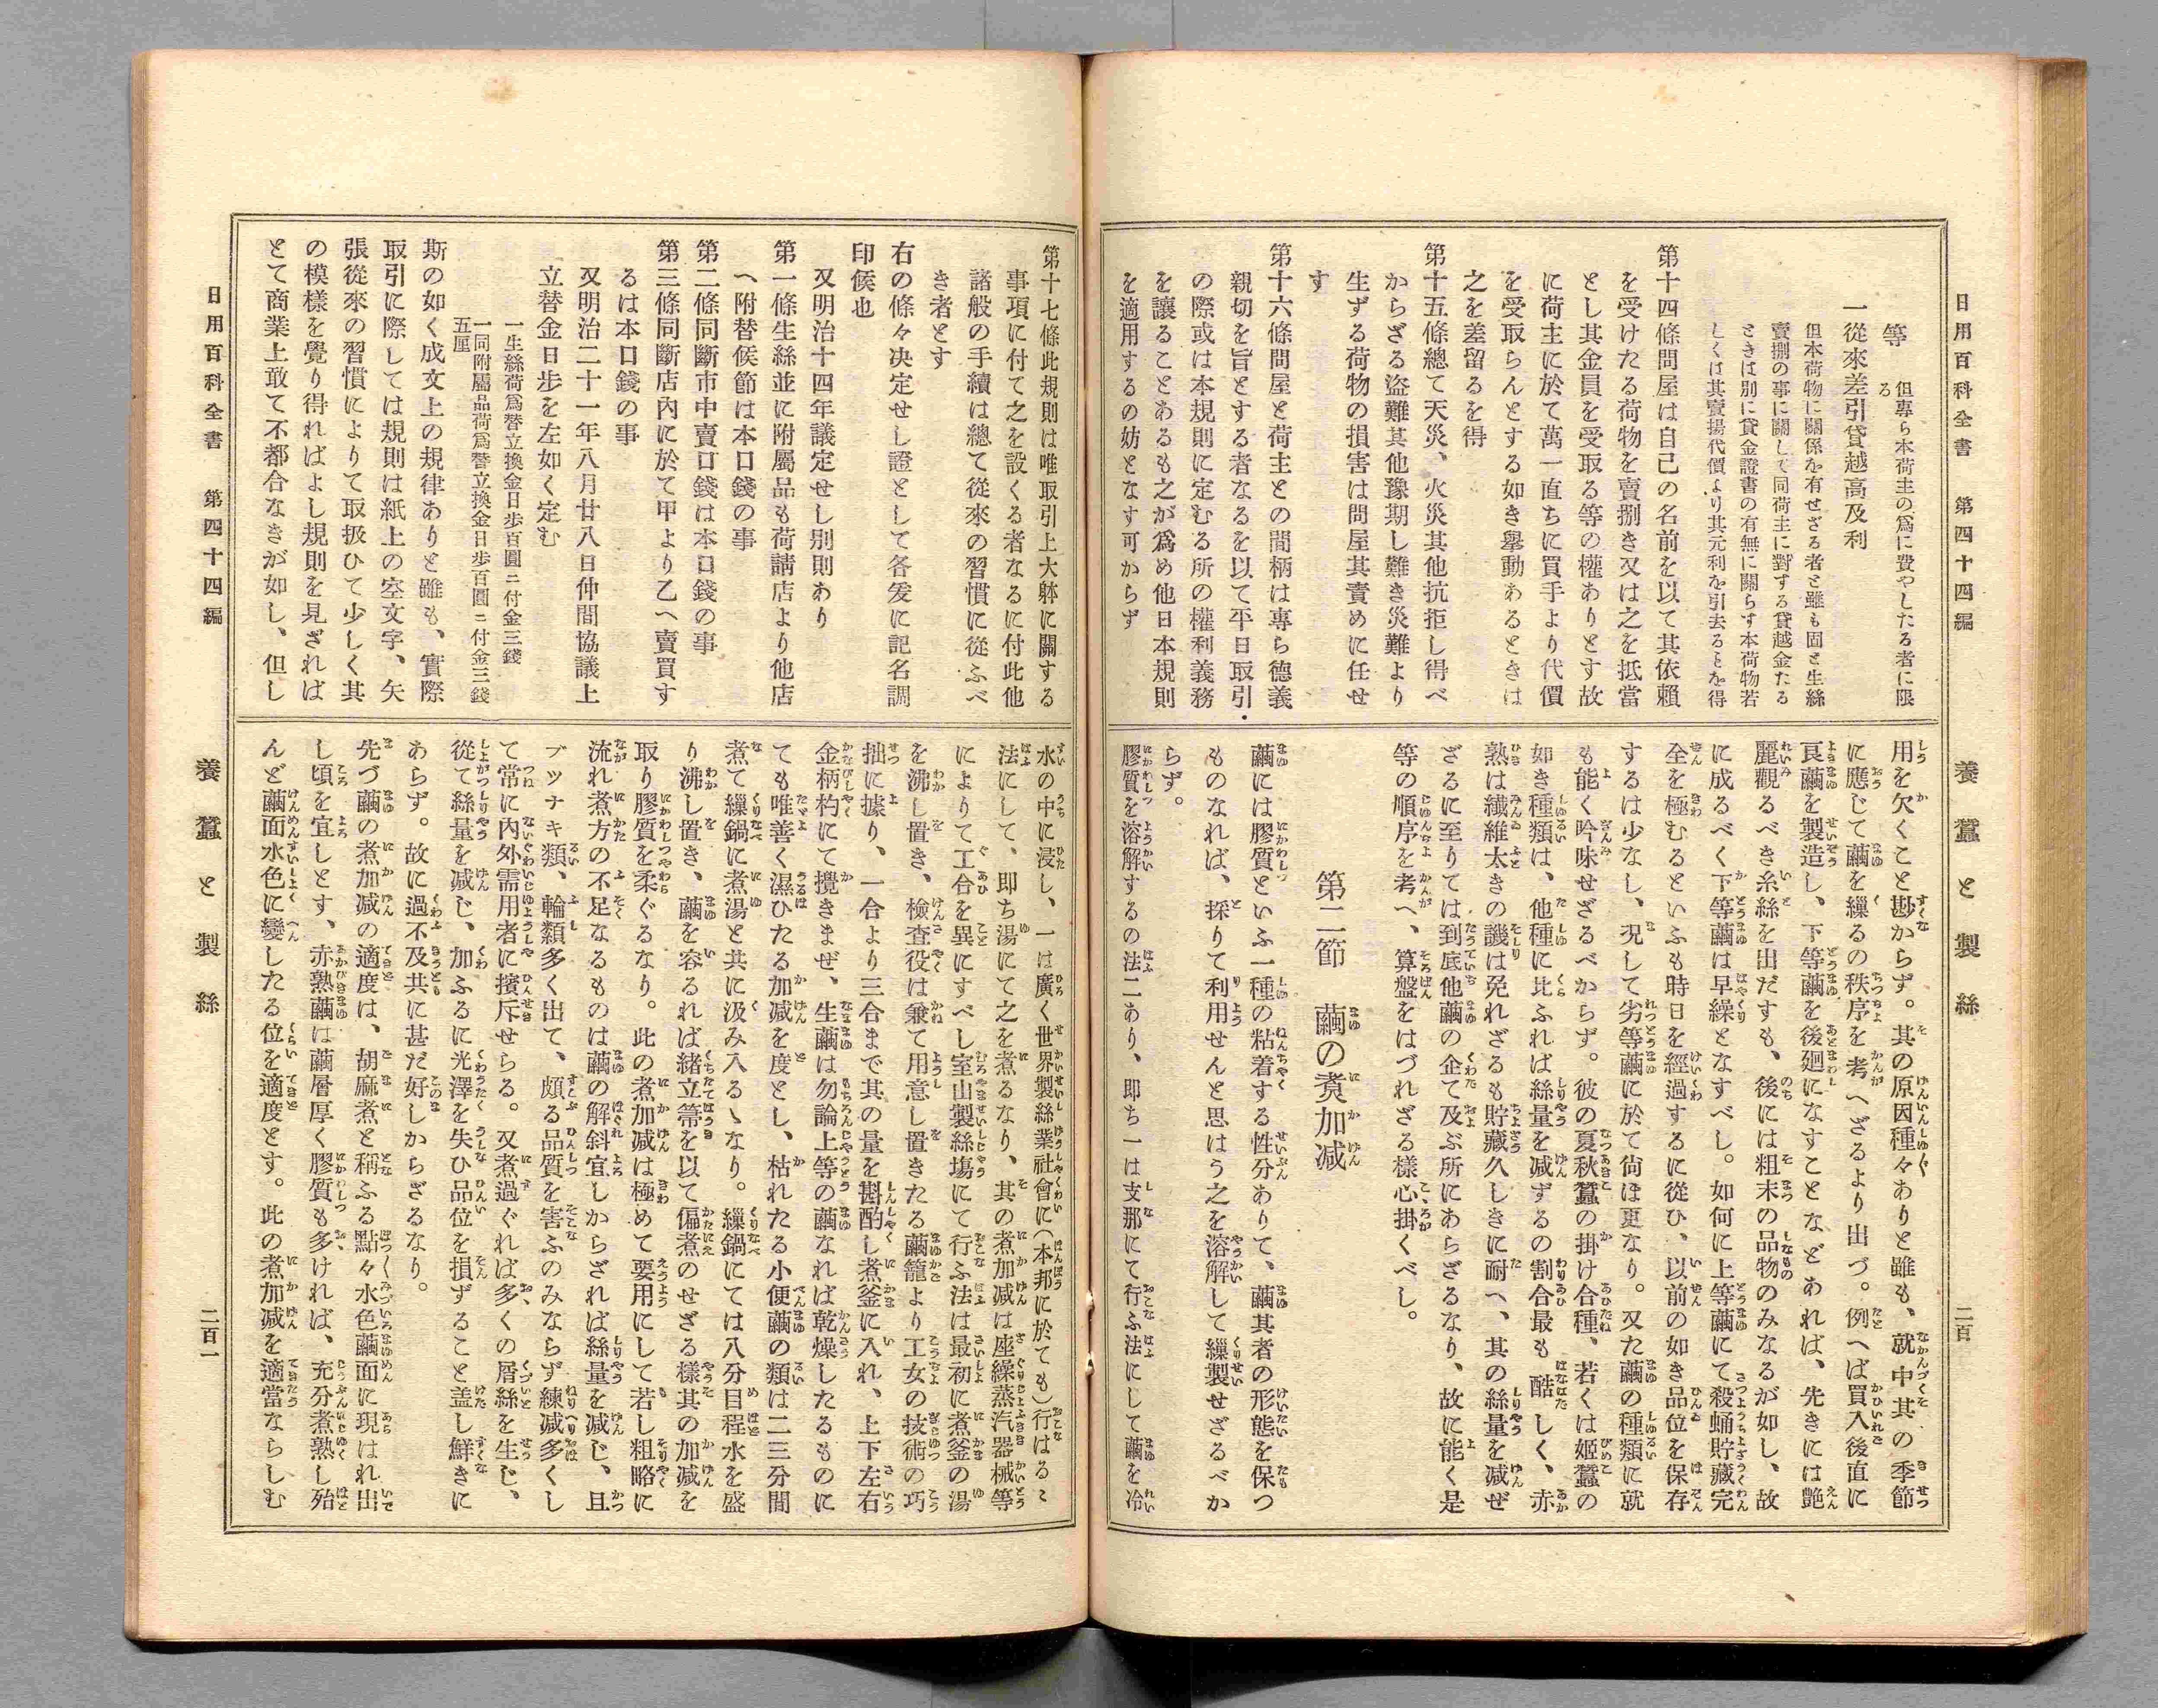 日用百科全書　第四十四編　養蠶と製絲　二百
等　但專ら本荷主の爲に費やしたる者に限
る
一從來差引貸越高及利
但本荷物に關係を有せざる者と雖も固と生絲
賣捌の事に關して同荷主に對する貸越金たる
ときは別に貸金證書の有無に關らす本荷物若
しくは其賣揚代價より其元利を引去るとを得
第十四條問屋は自己の名前を以て其依賴
を受けたる荷物を賣捌き又は之を抵當
とし其金員を受取る等の權ありとす故
に荷主に於て萬一直ちに買手より代價
を受取らんとする如き擧動あるときは
之を差留るを得
第十五條總て天災、火災其他抗拒し得べ
からざる盜難其他豫期し難き災難より
生ずる荷物の損害は問屋其責めに任せ
す
第十六條問屋と荷主との間柄は專ら德義
親切を旨とする者なるを以て平日取引
の際或は本規則に定むる所の權利義務
を讓ることあるも之が爲め他日本規則
を適用するの妨となす可からず
用を欠くこと尠からず。其の原因種々ありと雖も、就中其の季節
に應じて繭を繰るの秩序を考へざるより出づ。例へば買入後直に
良繭を製造し、下等繭を後廻になすことなどあれば、先きには艶
麗觀るべき糸絲を出だすも、後には粗末の品物のみなるが如し、故
に成るべく下等繭は早繰となすべし。如何に上等繭にて殺蛹貯藏完
全を極むるといふも時日を經過するに從ひ、以前の如き品位を保存
するは少なし、況して劣等繭に於て尙ほ更なり。又た繭の種類に就
も能く吟味せざるべからず。彼の夏秋蠶の掛け合種、若くは姬蠶の
如き種類は、他種に比ふれば絲量を減ずるの割合最も酷しく、赤
熟は纖維太きの譏は免れざるも貯藏久しきに耐へ、其の絲量を減ぜ
ざるに至りては到底他繭の企て及ぶ所にあらざるなり、故に能く是
等の順序を考へ、算盤をはづれざる樣心掛くべし。
第二節　繭の煑加減
繭には膠質といふ一種の粘着する性分ありて、繭其者の形態を保つ
ものなれば、採りて利用せんと思はう之を溶解して繰製せざるべか
らず。
膠質を溶解するの法二あり、即ち一は支那にて行ふ法にして繭を冷
第十七條此規則は唯取引上大躰に關する
事項に付て之を設くる者なるに付此他
諸般の手續は總て從來の習慣に從ふべ
き者とす
右の條々决定せし證として各爰に記名調
印候也
又明治十四年議定せし別則あり
第一條生絲並に附屬品も荷請店より他店
へ附替候節は本口錢の事
第二條同斷市中賣口錢は本口錢の事
第三條同斷店內に於て甲より乙へ賣買す
るは本口錢の事
又明治二十一年八月廿八日仲間協議上
立替金日步を左如く定む
一生絲荷爲替立換金日步百圓ニ付金三錢
一同附屬品荷爲替立換金日步百圓ニ付金三錢
五厘
斯の如く成文上の規律ありと雖も、實際
取引に際しては規則は紙上の空文字、矢
張從來の習慣によりて取扱ひて少しく其
の模樣を覺り得ればよし規則を見ざれば
とて商業上敢て不都合なきが如し、但し
水の中に浸し、一は廣く世界製絲業社會に（本邦に於ても）行はるゝ
法にして、即ち湯にて之を煮るなり、其の煮加減は座繰蒸汽器械等
によりて工合を異にすべし室山製絲塲にて行ふ法は最初に煮釜の湯
を沸し置き、檢査役は兼て用意し置きたる繭籠より工女の技術の巧
拙に據り、一合より三合まで其の量を斟酌し煮釜に入れ、上下左右
金柄杓にて攪きまぜ、生繭は勿論上等の繭なれば乾燥したるものに
ても唯善く濕ひたる加減を度とし、枯れたる小便繭の類は二三分間
煮て繰鍋に煮湯と共に汲み入るゝなり。繰鍋にては八分目程水を盛
り沸し置き、繭を容るれば緒立箒を以て偏煮のせざる樣其の加減を
取り膠質を柔ぐるなり。此の煮加減は極めて要用にして若し粗略に
流れ煮方の不足なるものは繭の解斜宜しからざれば絲量を減じ、且
ブツナキ類、輪類多く出て、頗る品質を害ふのみならず練减多くし
て常に內外需用者に擯斥せらる。又煮過ぐれば多くの屑絲を生じ、
從て絲量を减じ、加ふるに光澤を失ひ品位を損ずること盖し鮮きに
あらず。故に過不及共に甚だ好しからざるなり。
先づ繭の煮加减の適度は、胡麻煮と稱ふる點々水色繭面に現はれ出
し頃を宜しとす、赤熟繭は繭層厚く膠質も多ければ、充分煮熟し殆
んど繭面水色に變したる位を適度とす。此の煮加减を適當ならしむ
日用百科全書　第四十四編　養蠶と製絲　二百一